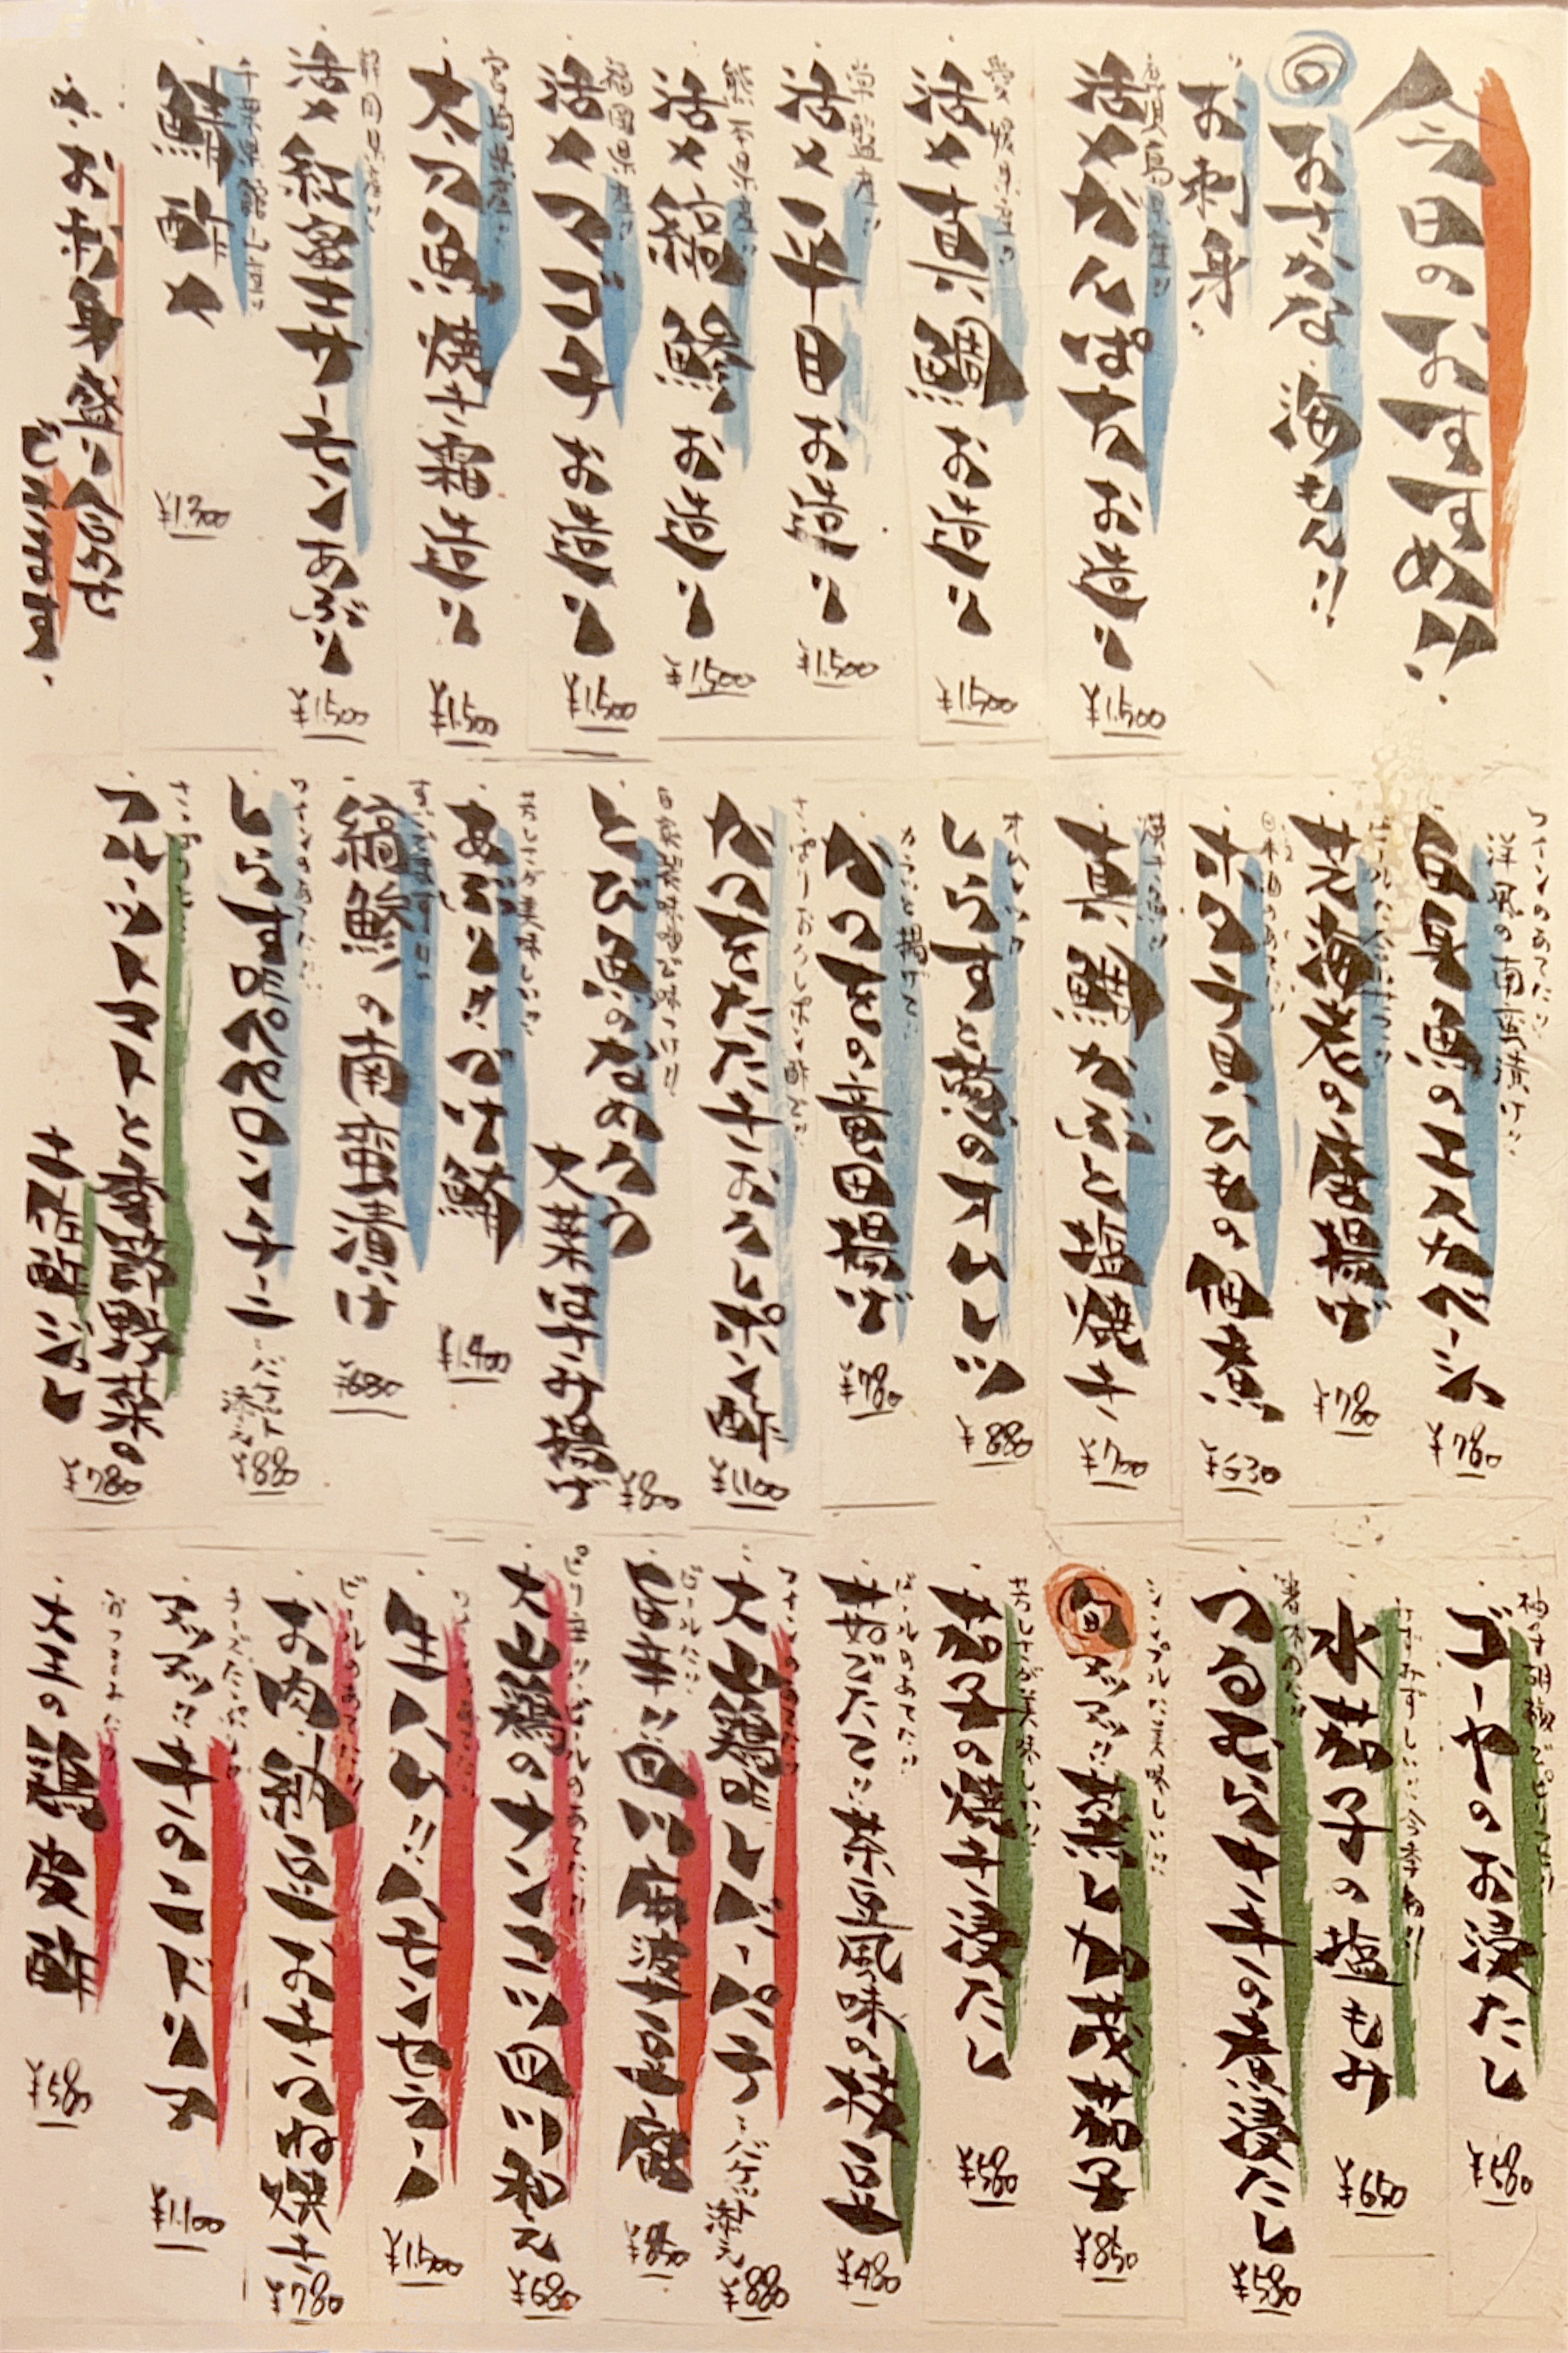 今日のおすすめ!!
◎おさかな海もん!!
お刺身
鹿児島県産!!
活〆かんぱちお造り
¥1,500
愛媛県産!!
活〆真鯛お造り
¥1,500
活〆平目お造り
¥1,500
熊本県産!!
活〆縞鯵お造り
¥1,500
福岡県産!!
活〆マゴチお造り
¥1,500
太刀魚焼き霜造り
¥1,500
静岡県産!!
活〆紅富士サーモンあぶり
¥1,500
千葉県館山産!!
鯖酢〆
¥1,300
お刺身盛り合わせ
できます。
ワインのあてに!!
洋風の南蛮漬け!!
白身魚のエスカベーシュ
¥780
芝海老の唐揚げ
¥780
日本酒のあてに!!
ホタテ貝ひもの佃煮
¥630
真鯛かぶと塩焼き
¥700
しらすと葱のオムレツ
¥880
カラッと揚げて!!
かつをの竜田揚げ
¥780
さっぱりおろしポン酢で!!
かつをたたきおろしポン酢
¥1,100
自家製味噌で味つけ!!
とび魚のなめろう
大葉はさみ揚げ
¥80
あぶりきずし鯖
¥1,400
縞鯵の南蛮漬け
¥680
ワインのあてに!!
しらすペペロンチーニ
バケット添え
¥880
フルーツトマトと香味野菜の
土佐酢ジュレ
¥780
柚子胡椒でピリッと!!
ゴーヤのお浸だし
¥580
みずみずしい!!今季初!!
水茄子の塩もみ
¥650
つるむらさきの煮浸だし
¥580
シンプルに美味しい!!
旬 アツアツ!!蒸し加茂茄子
¥850
茄子の焼き浸だし
¥580
ビールのあてに!!
茹でたて!!茶豆風味の枝豆
¥480
ワインのあてに!!
大山鶏レバーパテ
バケット添え
¥880
ビールに!!
旨辛!!四川麻波豆腐
¥850
ピリ辛!!ビールのあてに!!
大山鶏のナンコツ四川和え
¥680
生ハム!!ハモンセラーノ
¥1,500
ビールのあてに!!
お肉納豆おきつね焼き
¥780
アツアツ!!牛のコンドリア
¥1,100
大王の鶏皮酢
¥580